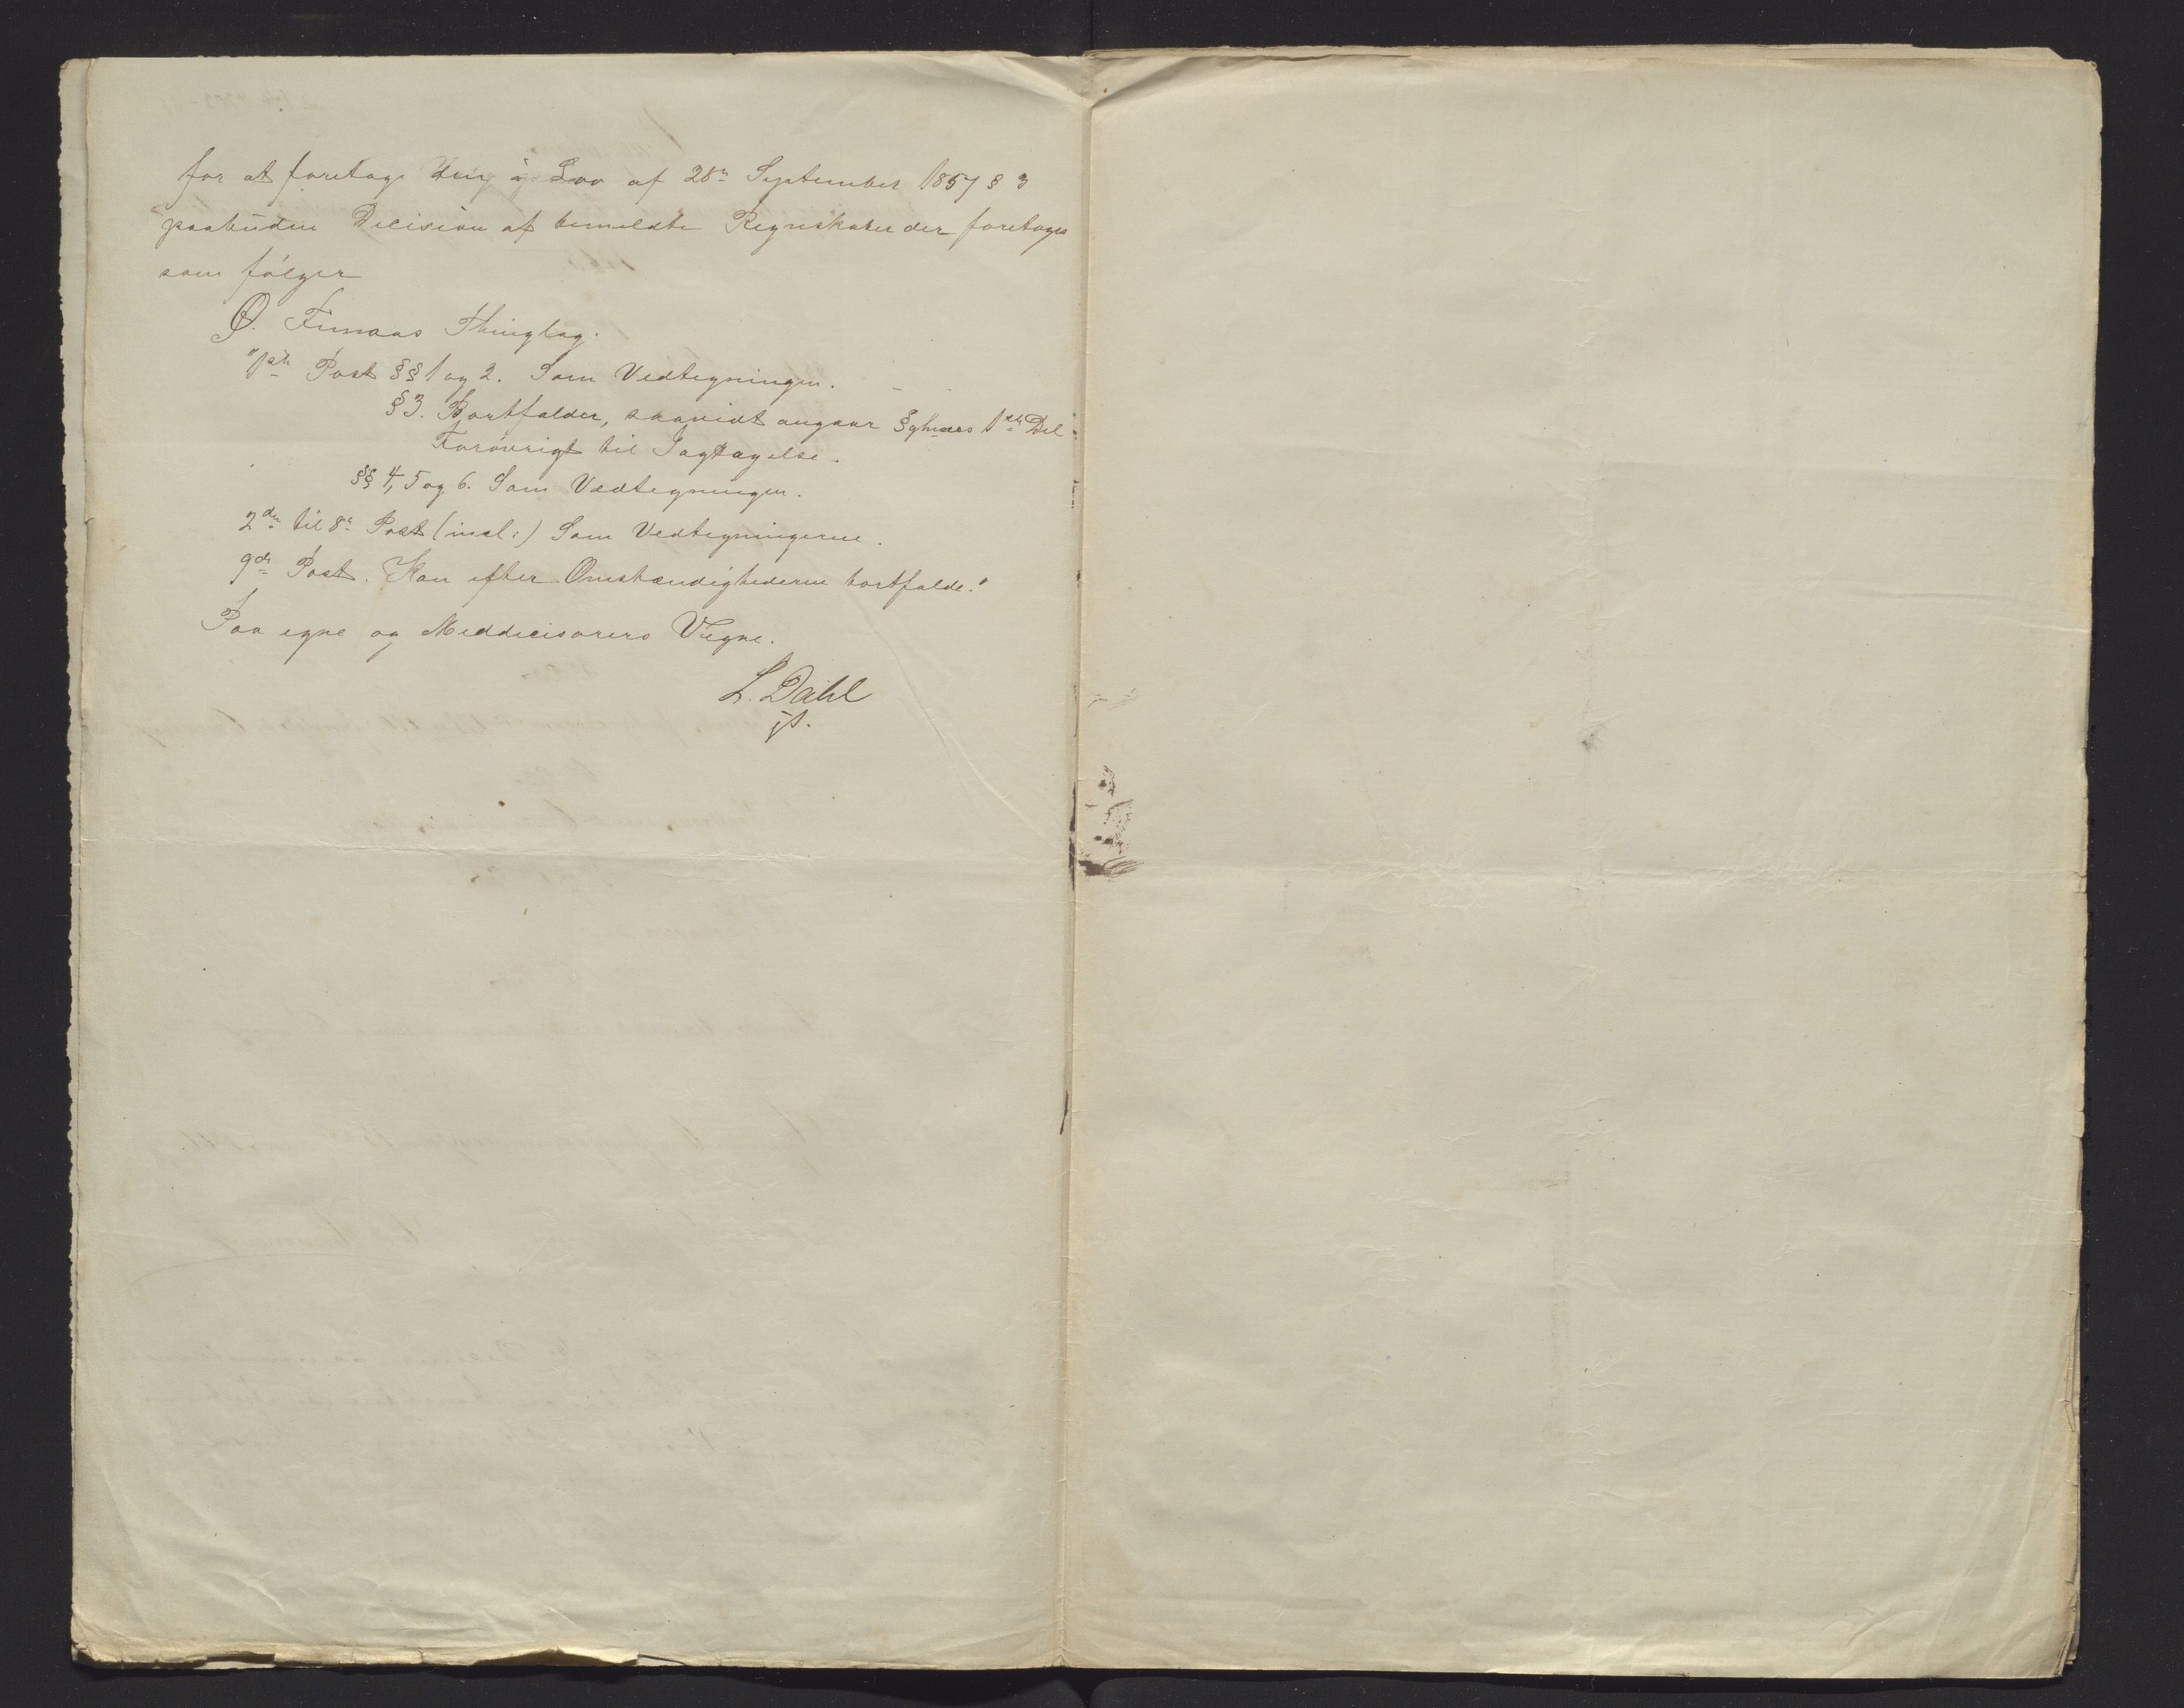 for at foretage den i Lov af 28n September 1857 § 3
paabudne Decision af bemeldte Regnskaber der foretoges
som følger
Thinglag.
"1ste Post §§ 1 og 2. Som Vedtegningen.
§ 3. Bortfalder, saavidt angaar § 1ste Del
Forøvrigt til Iagttagelse.
§§ 4, 5 og 6. Som Vedtegningen.
2den til 8e Post (incl:) Som Vedtegningerne.
9de Post. Kan efter Omstændighederne bortfalde."
Paa egne og Meddecisorers Vegne.
L. Dahl